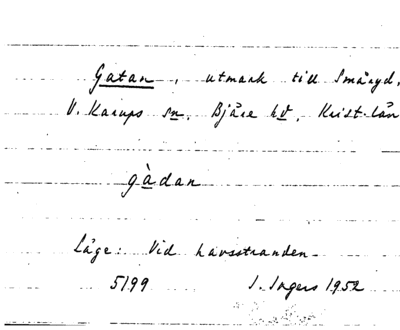 Gatan, utmark till Småryd,
V. Karups sn. Bjäre hd, Krist. län
gàdan
Läge: Vid havsstranden.
5199 I. Ingers 1952